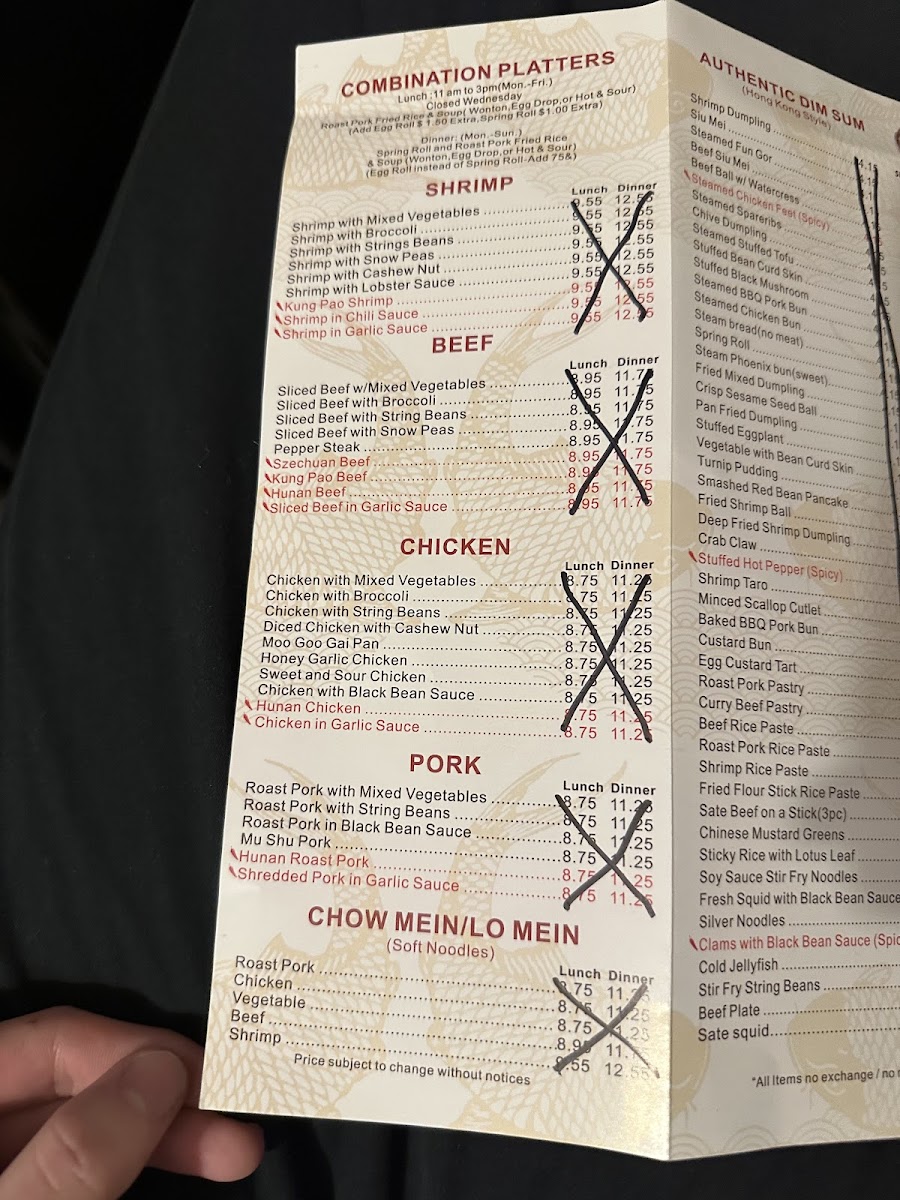 COMBINATION PLATTERS
Lunch :11 am to 3pm(Mon.-Fri.)
Closed Wednesday
Roast Pork Fried Rice & Soup( Wonton,Egg Drop,or Hot & Sour)
(Add Egg Roll $ 1.50 Extra,Spring Roll $1.00 Extra)
Dinner: (Mon.-Sun.)
Spring Roll and Roast Pork Fried Rice
& Soup (Wonton,Egg Drop,or Hot & Sour)
(Egg Roll instead of Spring Roll-Add 75&)
SHRIMP
Lunch Dinner
Shrimp with Mixed Vegetables 9.55 12.55
Shrimp with Broccoli 9.55 12.55
Shrimp with Strings Beans 9.55 12.55
Shrimp with Snow Peas 9.55 12.55
Shrimp with Cashew Nut 9.55 12.55
Shrimp with Lobster Sauce 9.55 12.55
Kung Pao Shrimp 9.55 12.55
Shrimp in Chili Sauce 9.55 12.55
Shrimp in Garlic Sauce 9.55 12.55
BEEF
Lunch Dinner
Sliced Beef w/Mixed Vegetables 8.95 11.75
Sliced Beef with Broccoli 8.95 11.75
Sliced Beef with String Beans 8.95 11.75
Sliced Beef with Snow Peas 8.95 11.75
Pepper Steak 8.95 11.75
Szechuan Beef 8.95 11.75
Kung Pao Beef 8.95 11.75
Hunan Beef 8.95 11.75
Sliced Beef in Garlic Sauce 8.95 11.75
CHICKEN
Lunch Dinner
Chicken with Mixed Vegetables 8.75 11.25
Chicken with Broccoli 8.75 11.25
Chicken with String Beans 8.75 11.25
Diced Chicken with Cashew Nut 8.75 11.25
Moo Goo Gai Pan 8.75 11.25
Honey Garlic Chicken 8.75 11.25
Sweet and Sour Chicken 8.75 11.25
Chicken with Black Bean Sauce 8.75 11.25
Hunan Chicken 8.75 11.25
Chicken in Garlic Sauce 8.75 11.25
PORK
Lunch Dinner
Roast Pork with Mixed Vegetables 8.75 11.25
Roast Pork with String Beans 8.75 11.25
Roast Pork in Black Bean Sauce 8.75 11.25
Mu Shu Pork 8.75 11.25
Hunan Roast Pork 8.75 11.25
Shredded Pork in Garlic Sauce 8.75 11.25
CHOW MEIN/LO MEIN
(Soft Noodles)
Lunch Dinner
Roast Pork 8.75 11.25
Chicken 8.75 11.25
Vegetable 8.75 11.25
Beef 8.95
Shrimp 9.55 12.55
Price subject to change without notices
AUTHENTIC DIM SUM
(Hong Kong Style)
Shrimp Dumpling 4.15
Siu Mei
Steamed Fun Gor
Beef Siu Mei
Beef Ball w/ Watercress
Steamed Chicken Feet (Spicy)
Steamed Spareribs
Chive Dumpling
Steamed Stuffed Tofu
Stuffed Bean Curd Skin
Stuffed Black Mushroom
Steamed BBQ Pork Bun
Steamed Chicken Bun
Steam bread(no meat)
Spring Roll
Steam Phoenix bun(sweet)
Fried Mixed Dumpling
Crisp Sesame Seed Ball
Pan Fried Dumpling
Stuffed Eggplant
Vegetable with Bean Curd Skin
Turnip Pudding
Smashed Red Bean Pancake
Fried Shrimp Ball
Deep Fried Shrimp Dumpling
Crab Claw
Stuffed Hot Pepper (Spicy)
Shrimp Taro
Minced Scallop Cutlet
Baked BBQ Pork Bun
Custard Bun
Egg Custard Tart
Roast Pork Pastry
Curry Beef Pastry
Beef Rice Paste
Roast Pork Rice Paste
Shrimp Rice Paste
Fried Flour Stick Rice Paste
Sate Beef on a Stick(3pc)
Chinese Mustard Greens
Sticky Rice with Lotus Leaf
Soy Sauce Stir Fry Noodles
Fresh Squid with Black Bean Sauce
Silver Noodles
Clams with Black Bean Sauce
Cold Jellyfish
Stir Fry String Beans
Beef Plate
Sate squid
*All Items no exchange / no